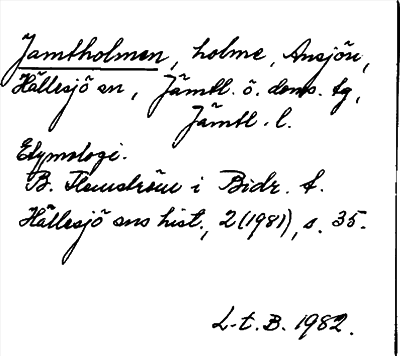 Jamtholmen, holme, Ansjön,
Hällesjö sn, Jämtl. ö. doms. tg,
Jämtl. l.
Etymologi.
B. Flemström i Bidr. t.
Hällesjö sns hist., 2 (1981), s. 35.
L-t. B. 1982.